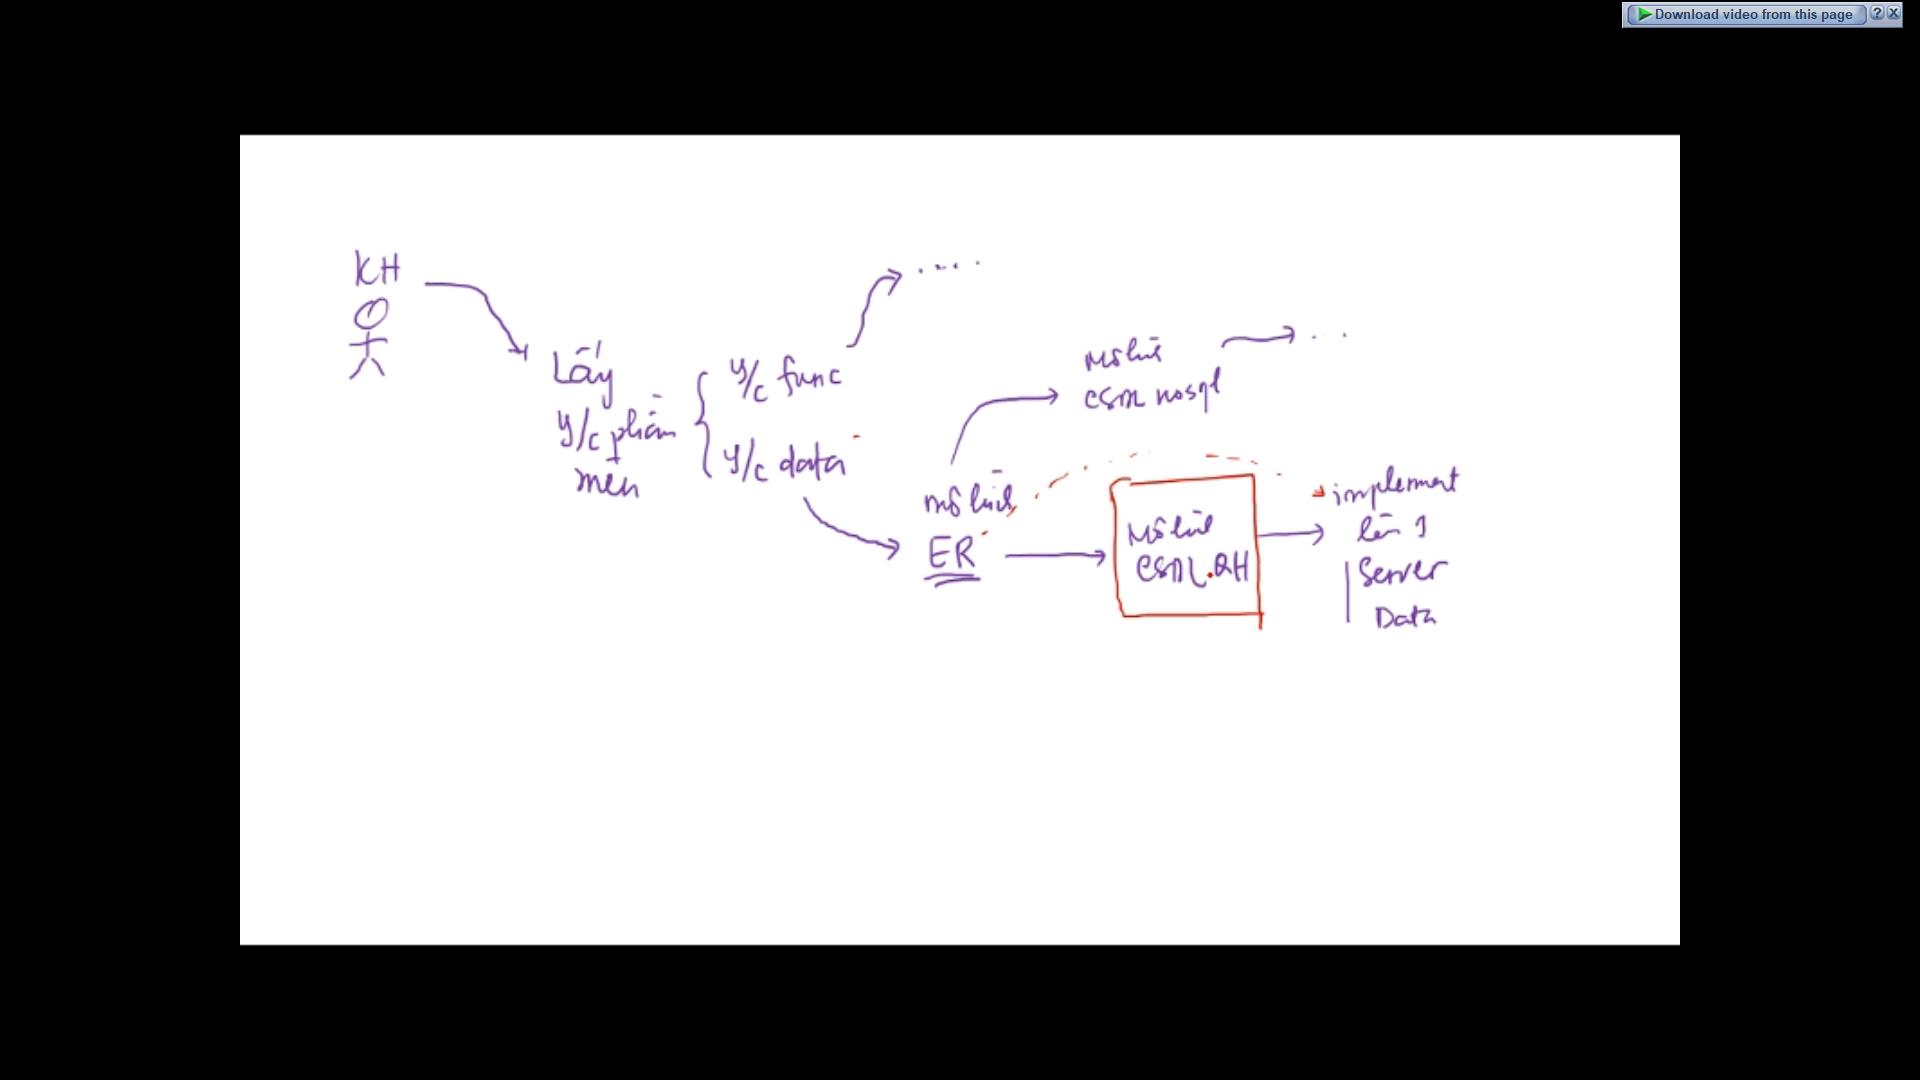 Download video from this page
KH
Lấy
y/c phần
mềm
y/c func
y/c data
....
mô hình
ER
Mô hình
CSDL nosql
...
Mô hình
CSDL.QH
implement
lên 1
Server
Data